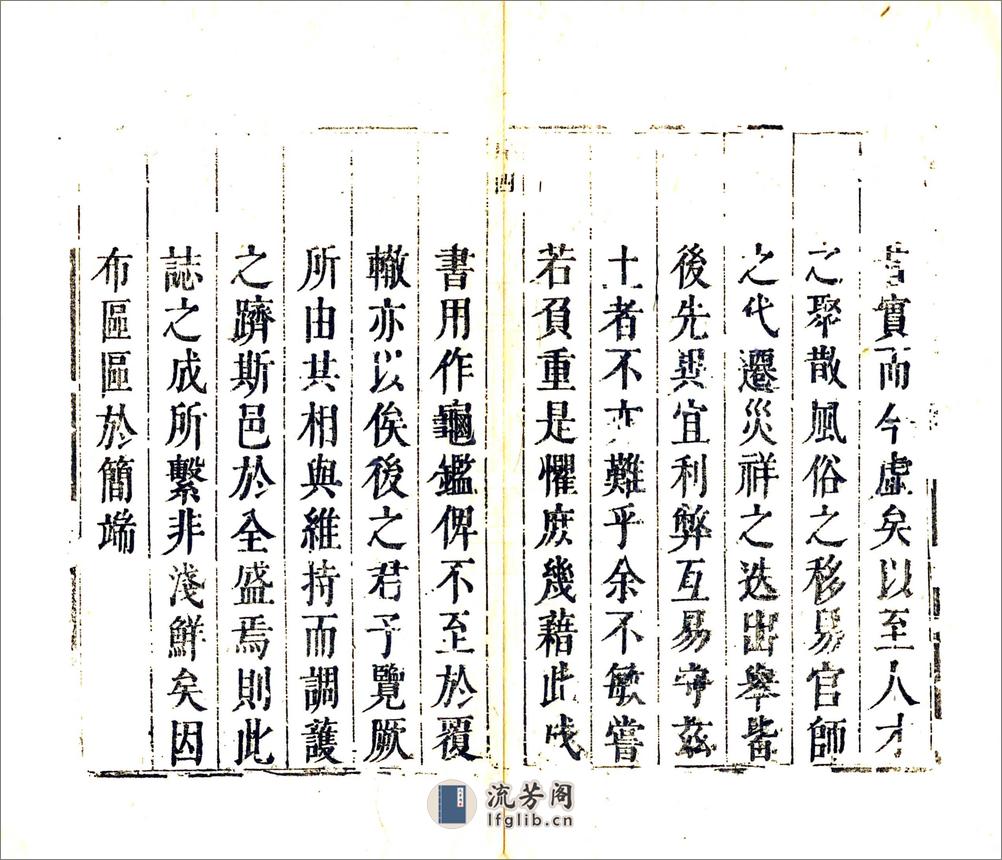 昔實而今虛矣以至人才
之聚散風俗之移易官師
之代遷災祥之迭出舉皆
後先異宜利弊互易守茲
土者不亦難乎余不敏嘗
若負重是懼庶幾藉此成
四
書用作龜鑑俾不至於覆
轍亦以俟後之君子覽厥
所由共相與維持而調護
之躋斯邑於全盛焉則此
誌之成所繫非淺鮮矣因
布區區於簡端
流芳阁
lfglib.cn